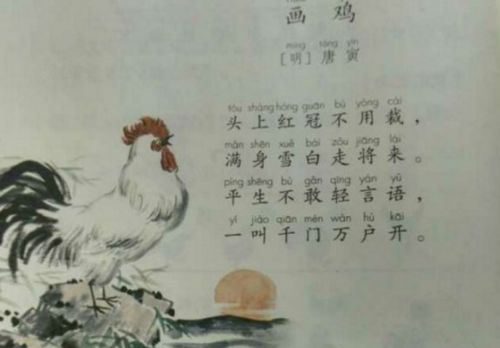 画 鸡
míng táng yín
[明] 唐 寅
tóu shàng hóng guān bú yòng cái
头 上 红 冠 不 用 裁，
mǎn shēn xuě bái zǒu jiāng lái
满 身 雪 白 走 将 来。
píng shēng bù gǎn qīng yán yǔ
平 生 不 敢 轻 言 语，
yí jiào qiān mén wàn hù kāi
一 叫 千 门 万 户 开。